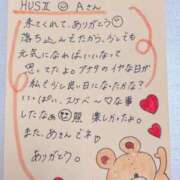 HUSⅡ☺ Aさん
来てくれて、ありがとう♡
落ち込んでたから、少しでも
元気になればいいなって
思ってたよ。アナタのイヤな日が
私で少し良い日になったかな?
いっぱい、スケベ〜♡な事
したなぁ 照 楽しかったよ。
また、あさんでネ
ありがとう。